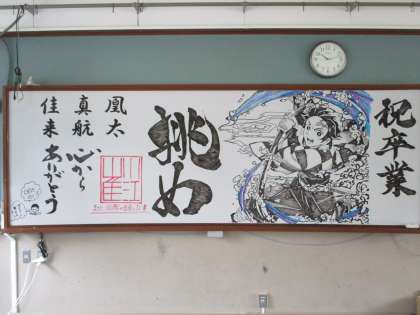 祝卒業
挑め
凰太
真航
佳来
心から
ありがとう